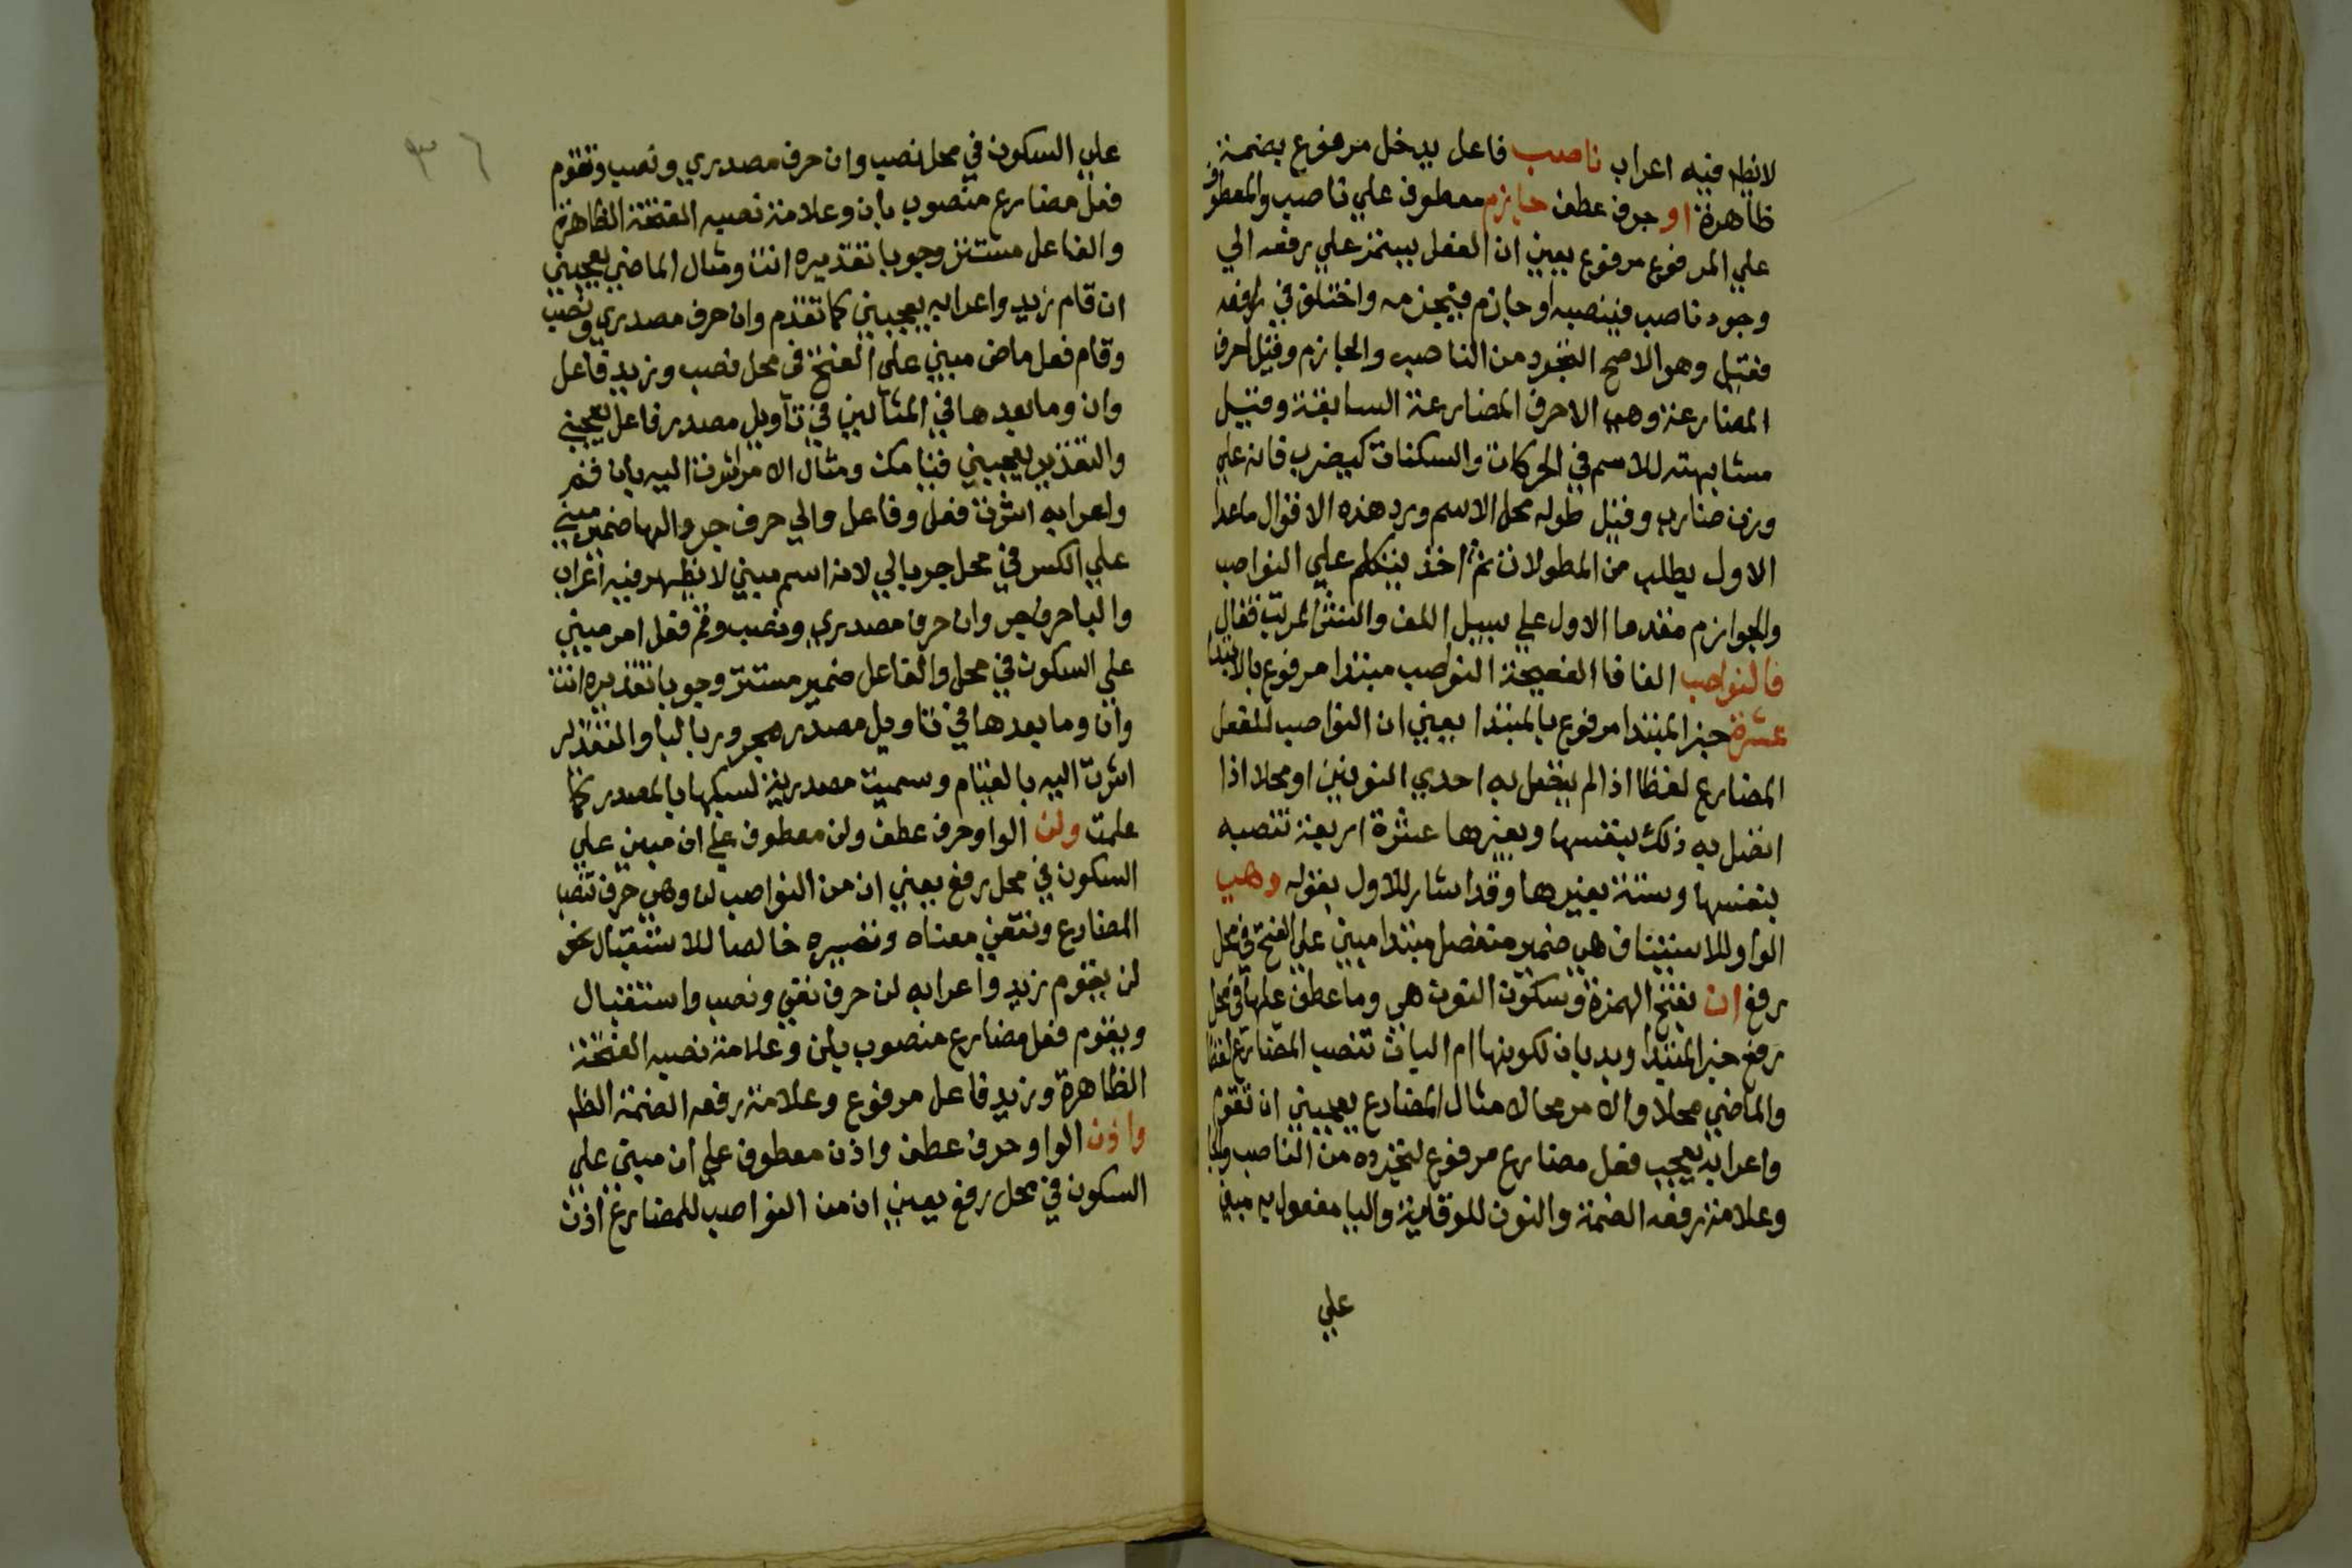 لا يظهر فيه اعراب ناصب فاعل يدخل مرفوع بضمة
ظاهرة او حرف عطف جازم معطوف علي ناصب والمعطوف
علي المرفوع مرفوع يعني ان الفعل يستمر علي رفعه الي
وجود ناصب فينصبه او جازم فيجزمه واختلف في رافعه
فقيل وهو الاصح التجرد من الناصب والجازم وقيل احرف
المضارعة وهي الاحرف المضارعة السابقة وقيل
مشابهته للاسم في الحركات والسكنات كيضرب فانه علي
وزن ضارب وقيل حلوله محل الاسم ورد هذه الاقوال ماعدا
الاول يطلب من المطولات ثم اخذ يتكلم علي النواصب
والجوازم مقدما الاول علي سبيل اللف والنشر المرتب فقال
فالنواصب الفا فا الفصيحة النواصب مبتدا مرفوع بالابتدا
عشرة خبر المبتدا مرفوع بالمبتدا يعني ان النواصب للفعل
المضارع لفظا اذا لم يتصل به احدي النونين او محلا اذا
اتصل به ذلك بنفسها وبغيرها عشرة اربعة تنصبه
بنفسها وستة بغيرها وقد اشار للاول بقوله وهي
الواو للاستيناف هي ضمير منفصل مبتدا مبني علي الفتح في محل
رفع ان بفتح الهمزة وسكون النون هي وما عطف عليها في محل
رفع خبر المبتدا وبد بان لكونها ام الباب تنصب المضارع لفظا
والماضي محلا والامر محلا مثال المضارع يعجبني ان تقوم
واعرابه يعجب فعل مضارع مرفوع لتجرده من الناصب والجا
وعلامة رفعه الضمة والنون للوقاية واليا مفعول به مبني
علي
٣٦
علي السكون في محل نصب وان حرف مصدري ونصب وتقوم
فعل مضارع منصوب بان وعلامة نصبه الفتحة الظاهرة
والفاعل مستتر وجوبا تقديره انت ومثال الماضي يعجبني
ان قام زيد واعرابه يعجبني كما تقدم وان حرف مصدري ونصب
وقام فعل ماض مبني علي الفتح في محل نصب وزيد فاعل
وان وما بعدها في المثالين في تاويل مصدر فاعل يعجبني
والتقدير يعجبني قيامك ومثال الامر اشرت اليه بان قم
واعرابه اشرت فعل وفاعل والي حرف جر والها ضمير مبني
علي الكسر في محل جر بالي لانه اسم مبني لا يظهر فيه اعراب
والبا حرف جر وان حرف مصدري ونصب وقم فعل امر مبني
علي السكون في محل والفاعل ضمير مستتر وجوبا تقديره انت
وان وما بعدها في تاويل مصدر مجرور بالبا والتقدير
اشرت اليه بالقيام وسميت مصدرية لسبكها بالمصدر كما
علمت ولن الواو حرف عطف ولن معطوف علي ان مبني علي
السكون في محل رفع يعني ان من النواصب لن وهي حرف تنصب
المضارع وتنفي معناه وتصيره خالصا للاستقبال نحو
لن يقوم زيد واعرابه لن حرف نفي ونصب واستقبال
ويقوم فعل مضارع منصوب بلن وعلامة نصبه الفتحة
الظاهرة وزيد فاعل مرفوع وعلامة رفعه الضمة الظا
واذن الواو حرف عطف واذن معطوف علي ان مبني علي
السكون في محل رفع يعني ان من النواصب للمضارع اذن